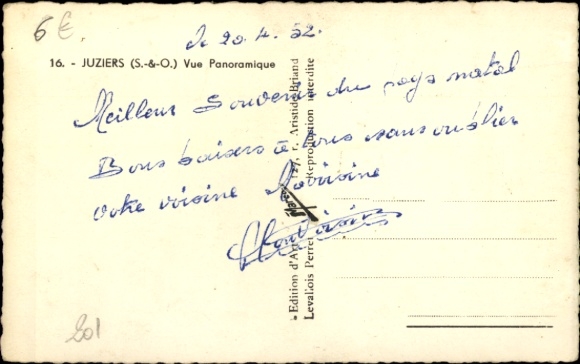 6 €
le 20.4.52.
16. - JUZIERS (S.-&-O.) Vue Panoramique
Meilleur Souvenir du pays natal
Bons baisers à tous sans oublier
votre voisine
Edition d'Art 27, r. Aristide-Briand
Levallois Perret Reproduction interdite
201